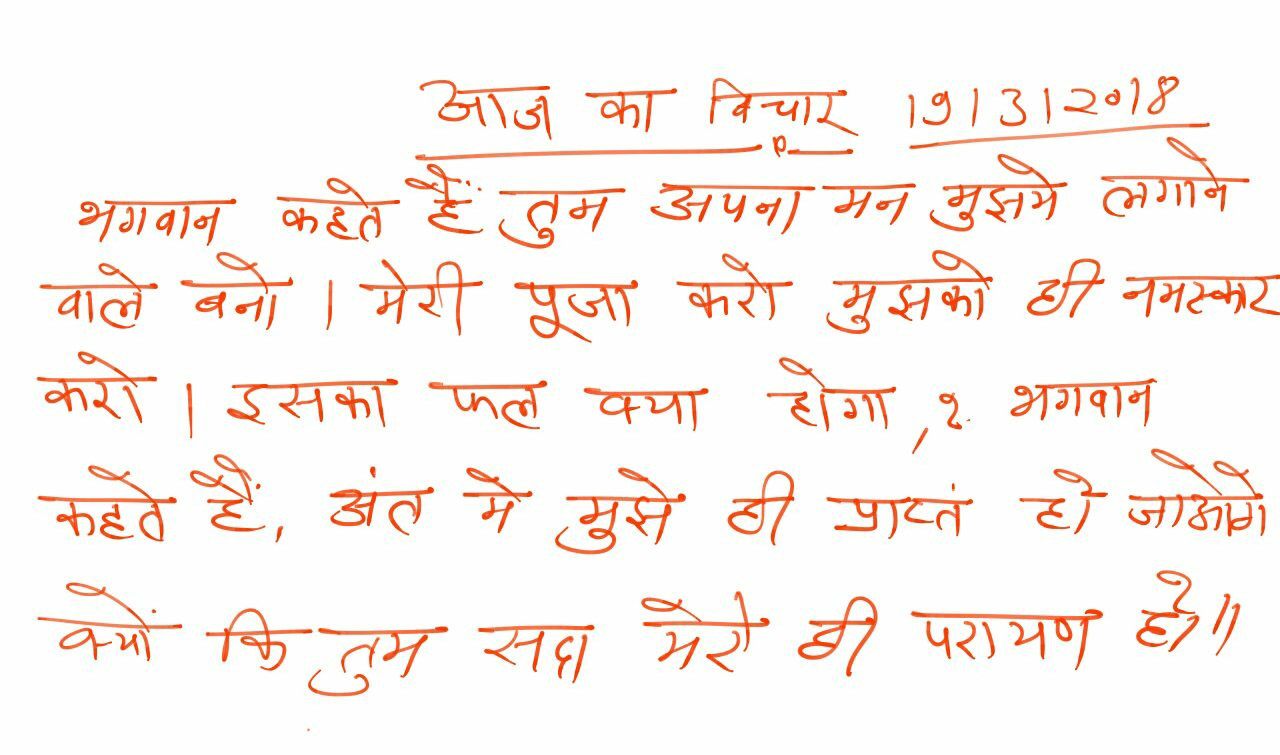 आज का विचार 19।3।2018
भगवान कहते हैं तुम अपना मन मुझमे लगाने
वाले बनो। मेरी पूजा करो मुझको ही नमस्कार
करो। इसका फल क्या होगा,? भगवान
कहते हैं, अंत मे मुझे ही प्राप्तं हो जाओगे
क्यों कि तुम सदा मेरे ही परायण हो॥